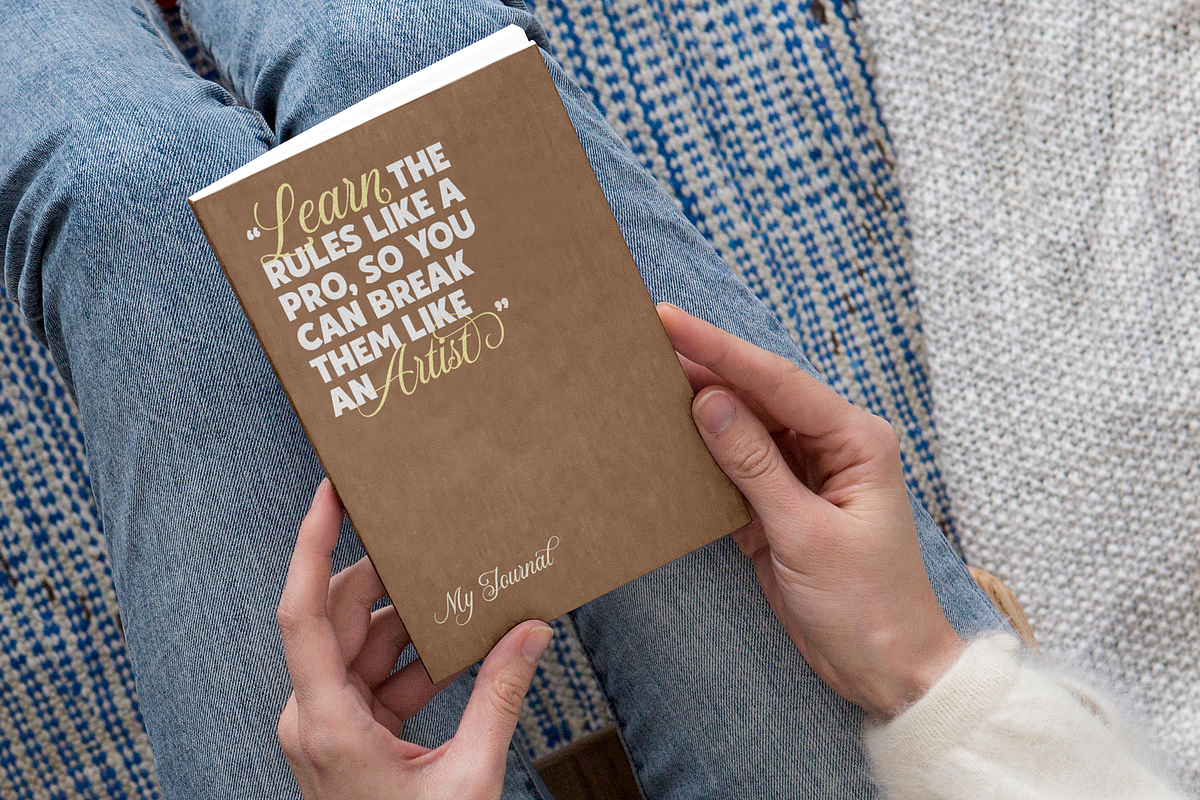 “Learn THE
RULES LIKE A
PRO, SO YOU
CAN BREAK
THEM LIKE
AN Artist”
My Journal